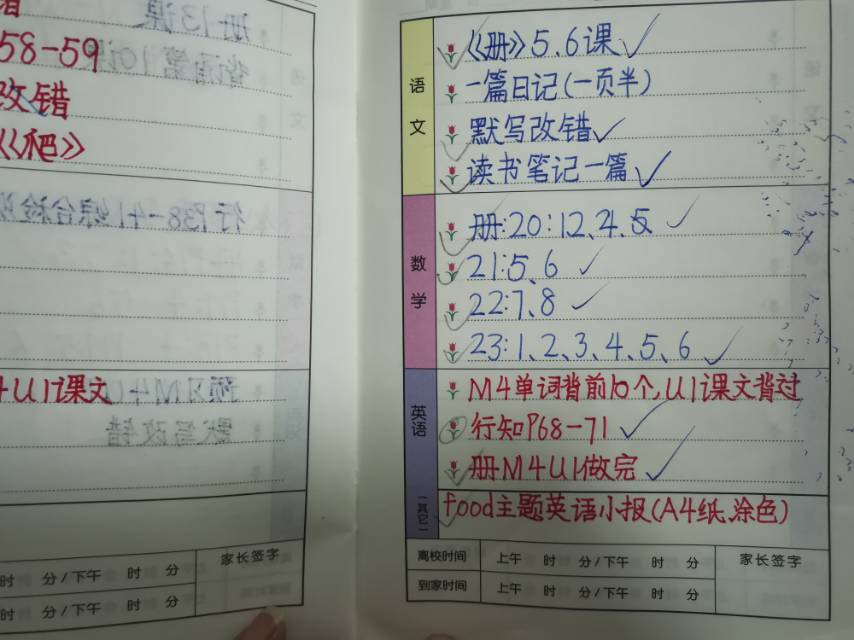 58-59
改错
《爬》
4U1课文
家长签字
时 分/下午 时 分
时 分/下午 时 分
语文
《册》5.6课✓
一篇日记(一页半)
默写改错✓
读书笔记一篇✓
数学
册:20:1、2、4、5
21:5、6
22:7、8
23:1、2、3、4、5、6
英语
M4单词背前10个,U1课文背过
行知P68-71
册M4U1做完
(其它)
food主题英语小报(A4纸、涂色)
离校时间 上午 时 分/下午 时 分 家长签字
到家时间 上午 时 分/下午 时 分